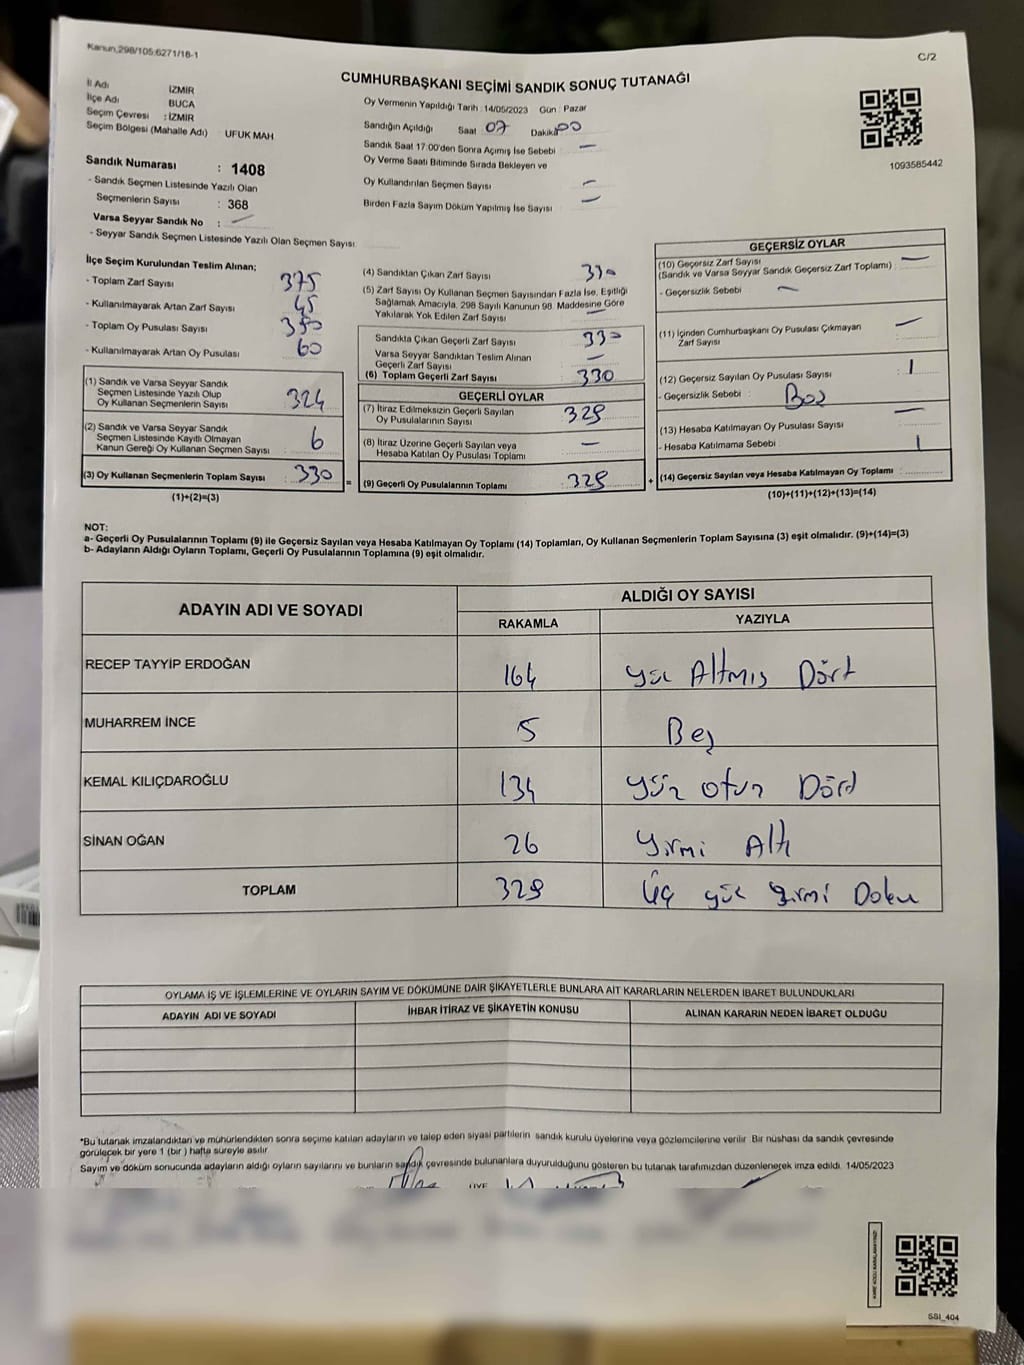 Kanun,298/105;6271/18-1
C/2
CUMHURBAŞKANI SEÇİMİ SANDIK SONUÇ TUTANAĞI
İl Adı İZMİR
İlçe Adı BUCA
Seçim Çevresi : İZMİR
Seçim Bölgesi (Mahalle Adı) : UFUK MAH.
Oy Vermenin Yapıldığı Tarih : 14/05/2023 Gün : Pazar
Sandığın Açıldığı Saat 07 Dakika 00
Sandık Saat 17:00'den Sonra Açımış İse Sebebi : —
Oy Verme Saati Bitiminde Sırada Bekleyen ve
Oy Kullandırılan Seçmen Sayısı —
Birden Fazla Sayım Döküm Yapılmış İse Sayısı —
1093585442
Sandık Numarası : 1408
- Sandık Seçmen Listesinde Yazılı Olan
Seçmenlerin Sayısı : 368
Varsa Seyyar Sandık No : —
- Seyyar Sandık Seçmen Listesinde Yazılı Olan Seçmen Sayısı
İlçe Seçim Kurulundan Teslim Alınan;
- Toplam Zarf Sayısı 375
- Kullanılmayarak Artan Zarf Sayısı : 45
- Toplam Oy Pusulası Sayısı
- Kullanılmayarak Artan Oy Pusulası 60
(1) Sandık ve Varsa Seyyar Sandık
Seçmen Listesinde Yazılı Olup
Oy Kullanan Seçmenlerin Sayısı 324
(2) Sandık ve Varsa Seyyar Sandık
Seçmen Listesinde Kayıtlı Olmayan
Kanun Gereği Oy Kullanan Seçmen Sayısı : 6
(3) Oy Kullanan Seçmenlerin Toplam Sayısı : 330 =
(1)+(2)=(3)
(4) Sandıktan Çıkan Zarf Sayısı 330
(5) Zarf Sayısı Oy Kullanan Seçmen Sayısından Fazla İse, Eşitliği
Sağlamak Amacıyla, 298 Sayılı Kanunun 98. Maddesine Göre
Yakılarak Yok Edilen Zarf Sayısı —
Sandıkta Çıkan Geçerli Zarf Sayısı 330
Varsa Seyyar Sandıktan Teslim Alınan
Geçerli Zarf Sayısı —
(6) Toplam Geçerli Zarf Sayısı 330
GEÇERLİ OYLAR
(7) İtiraz Edilmeksizin Geçerli Sayılan
Oy Pusulalarının Sayısı 329
(8) İtiraz Üzerine Geçerli Sayılan veya
Hesaba Katılan Oy Pusulası Toplamı —
(9) Geçerli Oy Pusulalarının Toplamı : 329 +
GEÇERSİZ OYLAR
(10) Geçersiz Zarf Sayısı
(Sandık ve Varsa Seyyar Sandık Geçersiz Zarf Toplamı) —
- Geçersizlik Sebebi : —
(11) İçinden Cumhurbaşkanı Oy Pusulası Çıkmayan
Zarf Sayısı —
(12) Geçersiz Sayılan Oy Pusulası Sayısı : 1
- Geçersizlik Sebebi : Boş
(13) Hesaba Katılmayan Oy Pusulası Sayısı —
- Hesaba Katılmama Sebebi : 1
(14) Geçersiz Sayılan veya Hesaba Katılmayan Oy Toplamı
(10)+(11)+(12)+(13)=(14)
NOT:
a- Geçerli Oy Pusulalarının Toplamı (9) ile Geçersiz Sayılan veya Hesaba Katılmayan Oy Toplamı (14) Toplamları, Oy Kullanan Seçmenlerin Toplam Sayısına (3) eşit olmalıdır. (9)+(14)=(3)
b- Adayların Aldığı Oyların Toplamı, Geçerli Oy Pusulalarının Toplamına (9) eşit olmalıdır.
ADAYIN ADI VE SOYADI
ALDIĞI OY SAYISI
RAKAMLA YAZIYLA
RECEP TAYYİP ERDOĞAN 164 yüz Altmış Dört
MUHARREM İNCE 5 Beş
KEMAL KILIÇDAROĞLU 134 yüz otuz Dört
SİNAN OĞAN 26 yirmi Altı
TOPLAM 329 Üç yüz yirmi Dokuz
OYLAMA İŞ VE İŞLEMLERİNE VE OYLARIN SAYIM VE DÖKÜMÜNE DAİR ŞİKAYETLERLE BUNLARA AİT KARARLARIN NELERDEN İBARET BULUNDUKLARI
ADAYIN ADI VE SOYADI İHBAR İTİRAZ VE ŞİKAYETİN KONUSU ALINAN KARARIN NEDEN İBARET OLDUĞU
*Bu tutanak imzalandıktan ve mühürlendikten sonra seçime katılan adayların ve talep eden siyasi partilerin sandık kurulu üyelerine veya gözlemcilerine verilir. Bir nüshası da sandık çevresinde
görülecek bir yere 1 (bir) hafta süreyle asılır.
Sayım ve döküm sonucunda adayların aldığı oyların sayılarını ve bunların sandık çevresinde bulunanlara duyurulduğunu gösteren bu tutanak tarafımızdan düzenlenerek imza edildi. 14/05/2023
SSI_404